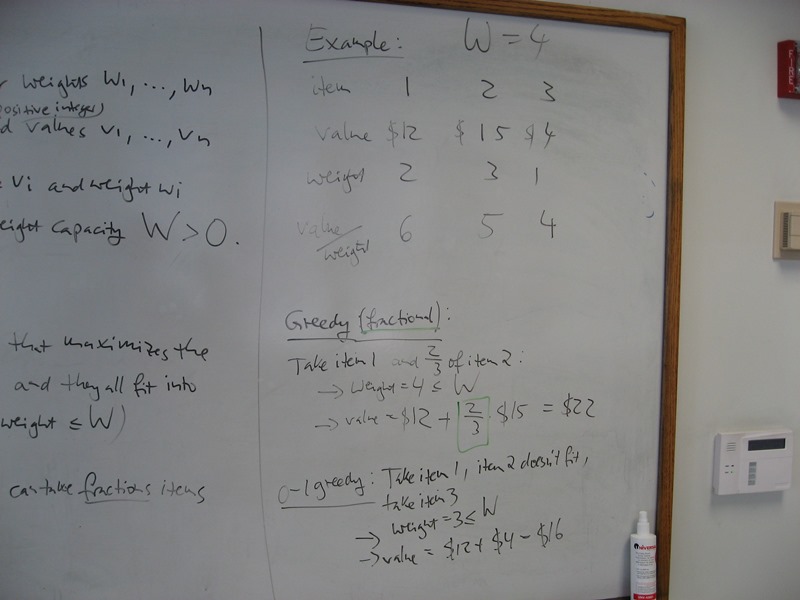 r weights w1, ..., wn
positive integer)
d values v1, ..., vn
vi and weight wi
eight capacity W > 0.
that maximizes the
and they all fit into
weight ≤ W)
can take fractions items
Example: W = 4
item 1 2 3
value $12 $15 $4
weight 2 3 1
value/weight 6 5 4
Greedy (fractional):
Take item 1 and 2/3 of item 2:
→ weight = 4 ≤ W
→ value = $12 + 2/3 · $15 = $22
0-1 greedy: Take item 1, item 2 doesn't fit,
take item 3
→ weight = 3 ≤ W
→ value = $12 + $4 = $16
FIRE